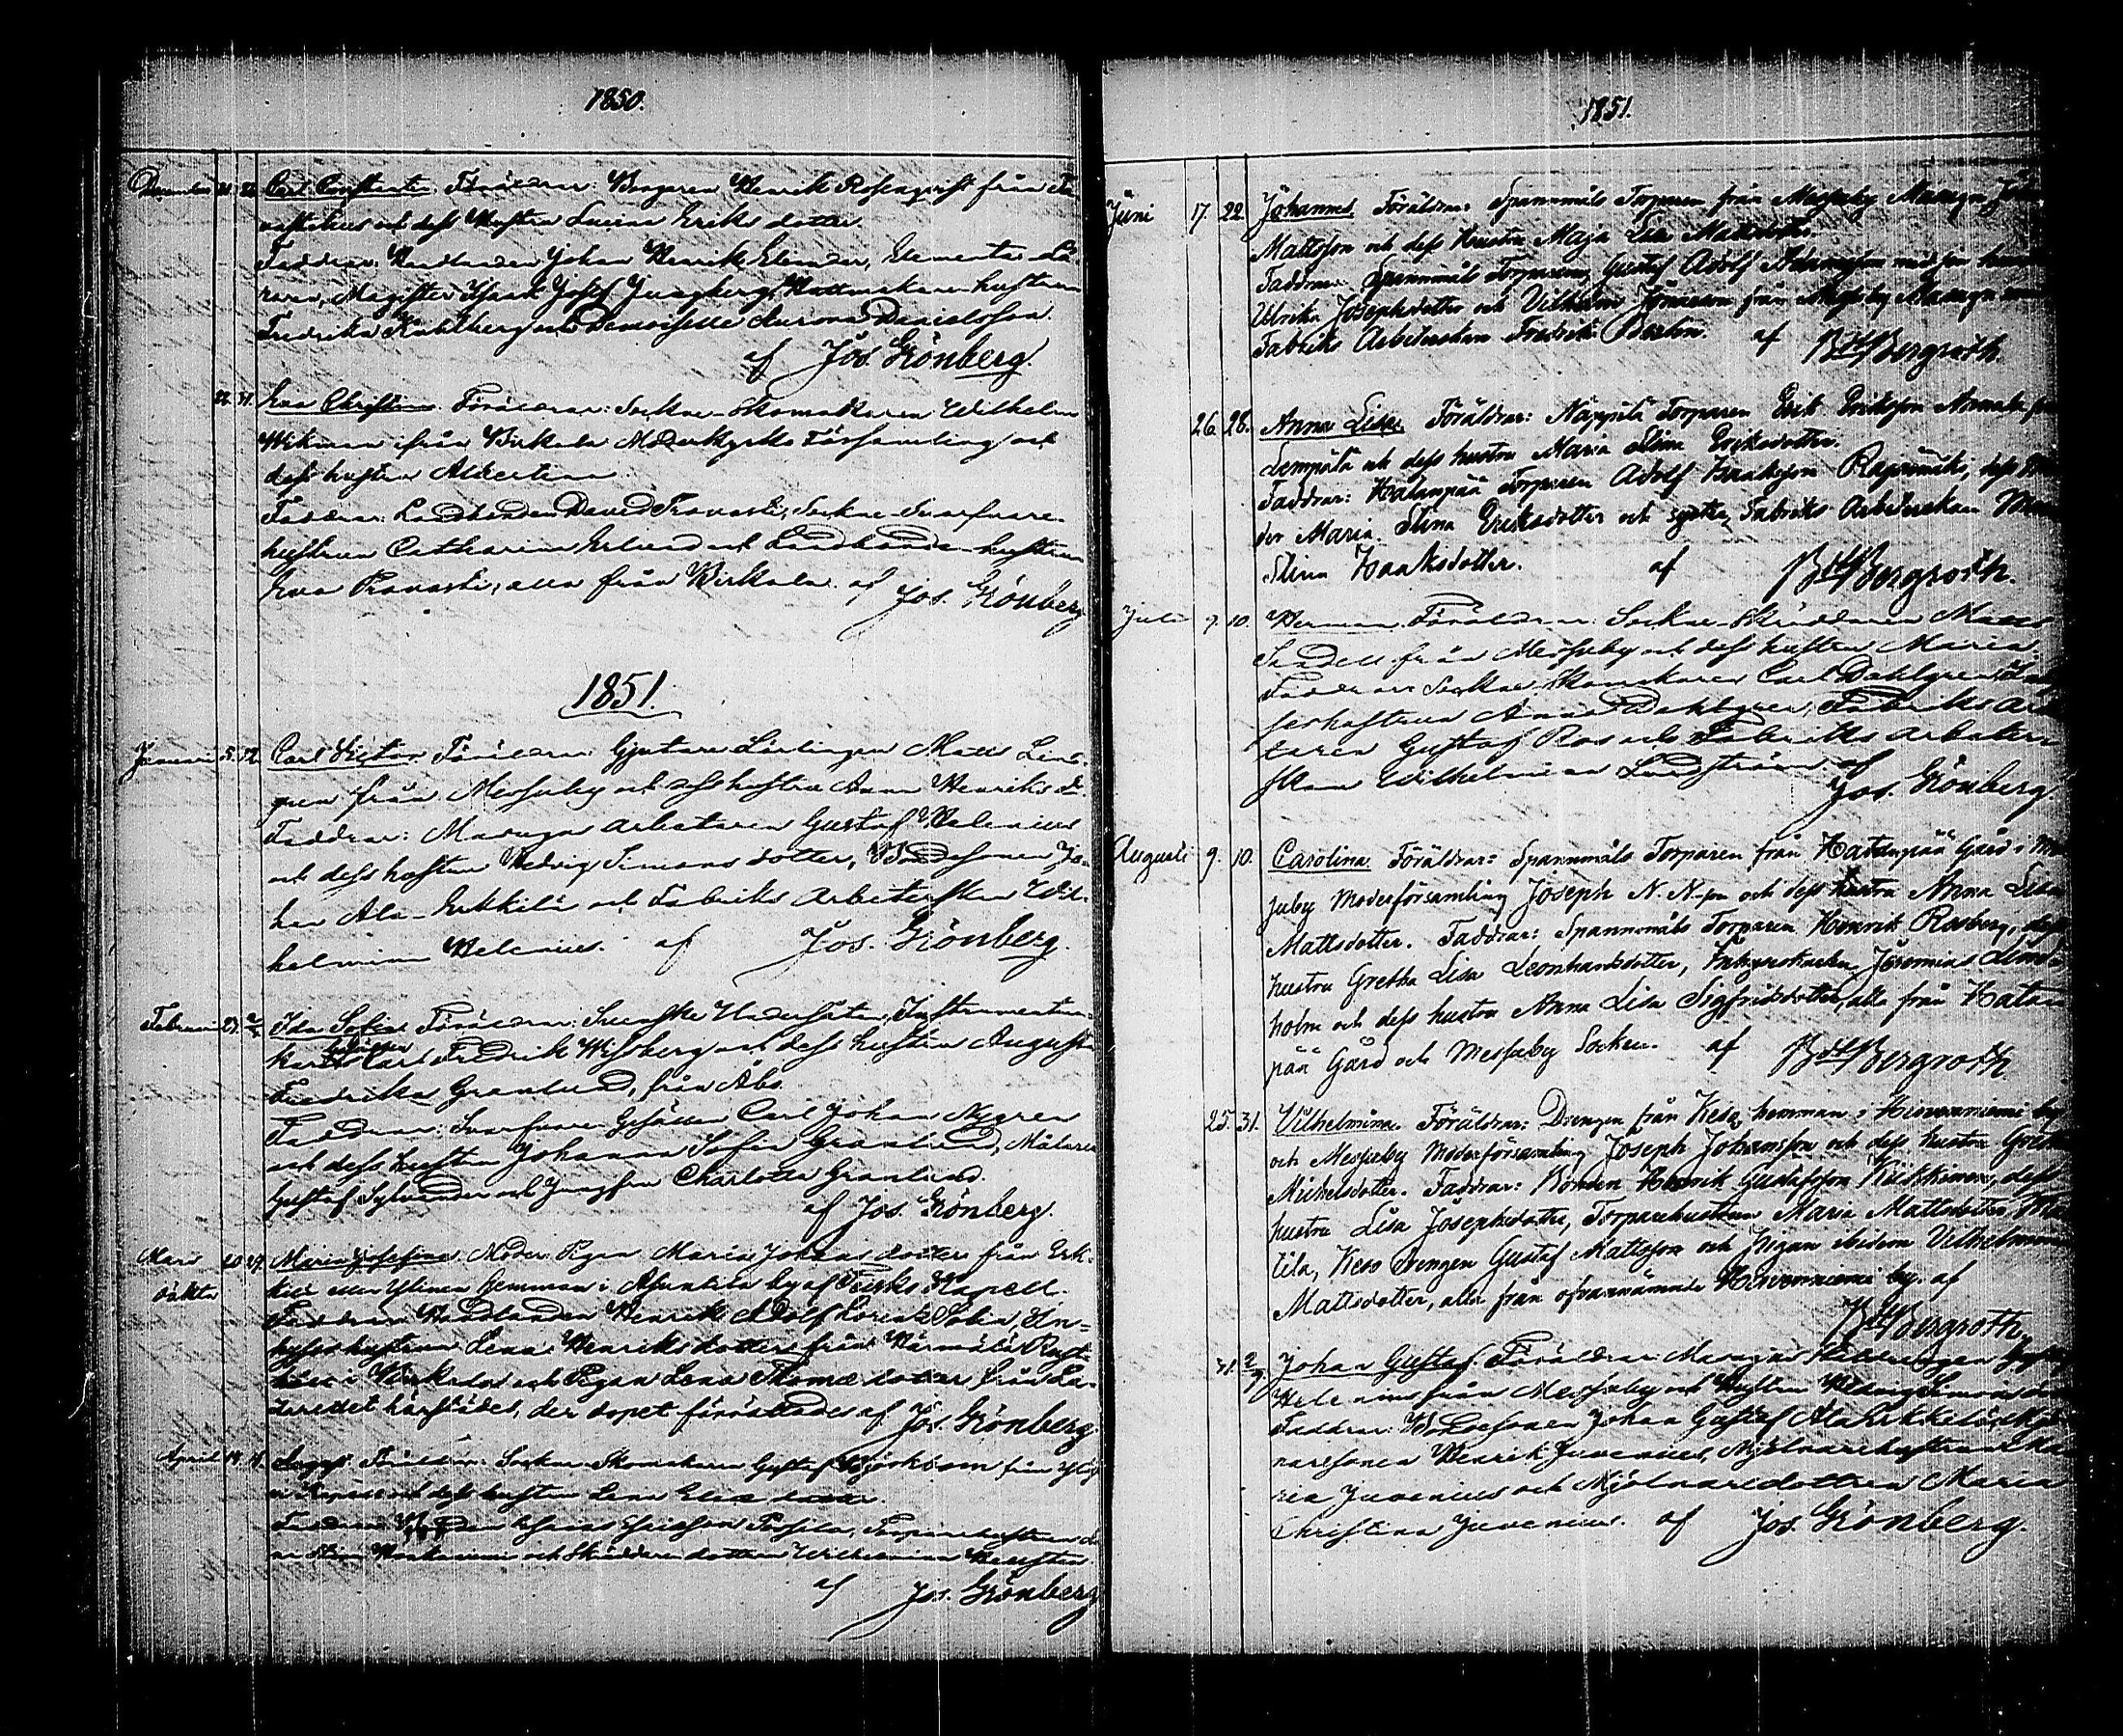 1850.
December 21. 22. Carl Constantin. Föräldrar: Borgaren Henrik Rosenqvist från Ta-
vastehus och dess Hustru Lovisa Eriks dotter.
Faddrar: Handlanden Johan Henrik Elander, Elementar-Lä-
raren, Magister Isaak Josef Jungberg, hustrun
Fredrika Kahlberg och Demoiselle Aurora Danielsson.
af Jos. Grönberg.
22. 31. Eva Christina. Föräldrar: Sockne-Skomakaren Wilhelm
Wikman ifrån Birkala Moderkyrko Församling och
dess hustru Albertina
Faddrar: Landbonden David Pravasti, Sockne-Svarfvare-
hustrun Catharina Erlund och Landbonde-hustrun
Eva Pravasti, alla från Birkala. af Jos. Grönberg
1851.
Januari 5. 12. Carl Victor. Föräldrar: Gjutare Lärlingen Matts Lind-
gren från Messuby och dess hustru Anna Henriks dr.
Faddrar: Masugns arbetaren Gustaf Helenius
och dess hustru Hedvig Simons dotter, Bondesonen Jo-
han Ala-Erkkilä och Fabriks Arbeterskan Wil-
helmina Helenius. af Jos. Grönberg.
Februari 27. Ida Sofia. Föräldrar: Svenske Undersåten, Instrumentma-
kare Gesällen Carl Fredrik Wissberg och dess hustru Augusta
Fredrika Granlund, från Åbo.
Faddrar: Svarfvare Gesällen Carl Johan Nygren
och dess hustru Johanna Sofia Granlund, Målaren
Gustaf Sylvander och Jungfru Charlotta Granlund.
af Jos. Grönberg.
Mars 20. 27. Maria Josefina. Moder: Pigan Maria Johans dotter från Erk-
oäkta kilä eller Ylinen hemman i by af Kapell.
Faddrar: Handlanden Henrik Adolf Lorentz Solin, In-
hyses hustrun Lena Henriks dotter från Härmälä Rust-
håll i Birkala och Pigan Lena Thomæ dotter från La-
zarettet härstädes, der dopet förrättades af Jos. Grönberg
April 14. Föräldrar: Sockne Skomakaren Gustaf Björkbom från
och dess hustru Lena Elias dotter.
Faddrar: Torparehustrun
och Skräddare dottern Wilhelmina
af Jos. Grönberg
1851.
Juni 17. 22. Johannes. Föräldrar: Spannmåls Torparen från Messuby Masugn Johan
Mattsson och dess hustru Maja Lisa Mattsdotter.
Faddrar: Spannmåls Torparen Gustaf Adolf med sin hustru
Ulrika Josephsdotter och Vilhelm från Messuby Masugn samt
Fabriks Arbeterskan Fredrika Berlin. af Bdt Bergroth.
26. 28. Anna Lisa. Föräldrar: Näppilä Torparen Erik Eriksson från
Lempälä och dess hustru Maria Stina Eriksdotter.
Faddrar: Hatanpää Torparen Adolf Isaaksson dess
Maria Stina Eriksdotter och syster, Fabriks Arbeterskan
Stina Isaaksdotter. af Bdt Bergroth.
Juli 9. 10. Herman. Föräldrar: Sockne-Skräddaren Matts
Sandell från Messuby och dess hustru Maria.
Faddrar: Sockne Skomakaren Carl Dahlgren,
hustrun Anna Dahlgren, Fabriks Arbe-
taren Gustaf Ros och Fabriks Arbeter-
skan Wilhelmina Lindström af
Jos. Grönberg.
Augusti 9. 10. Carolina. Föräldrar: Spannmåls Torparen från Hatanpää Gård i Mes-
suby Moderförsamling Joseph N. N-son och dess hustru Anna Lisa
Mattsdotter. Faddrar: Spannmåls Torparen Henrik Rosberg, dess
hustru Gretha Lisa Leonhardsdotter, Inhyseskarlen Jeremias Lind-
holm och dess hustru Anna Lisa Sigfridsdotter, alla från Hatan-
pää Gård och Messuby Socken. af Bdt Bergroth.
25. 31. Vilhelmina. Föräldrar: Drengen från Keso hemman i Hirvenniemi by
och Messuby Moderförsamling Joseph Johansson och dess hustru Greta
Michelsdotter. Faddrar: Bonden Henrik Gustafsson dess
hustru Lisa Josephsdotter, Torparehustrun Maria Mattsdotter
tila, Keso Drengen Gustaf Mattsson och Pigan ibidem Vilhelmina
Mattsdotter, alla från ofvannämnde Hirvenniemi by. af
Bdt Bergroth.
31. 2/9. Johan Gustaf. Föräldrar: Masugns Gustaf
Helenius från Messuby och Hustru Hedvig Simons dotter
Faddrar: Bondesonen Johan Gustaf Ala-Erkkilä, Mjöl-
naresonen Henrik Juvenius, Mjölnarehustrun Ma-
ria Juvenius och Mjölnaredottren Maria
Christina Juvenius. af Jos. Grönberg.